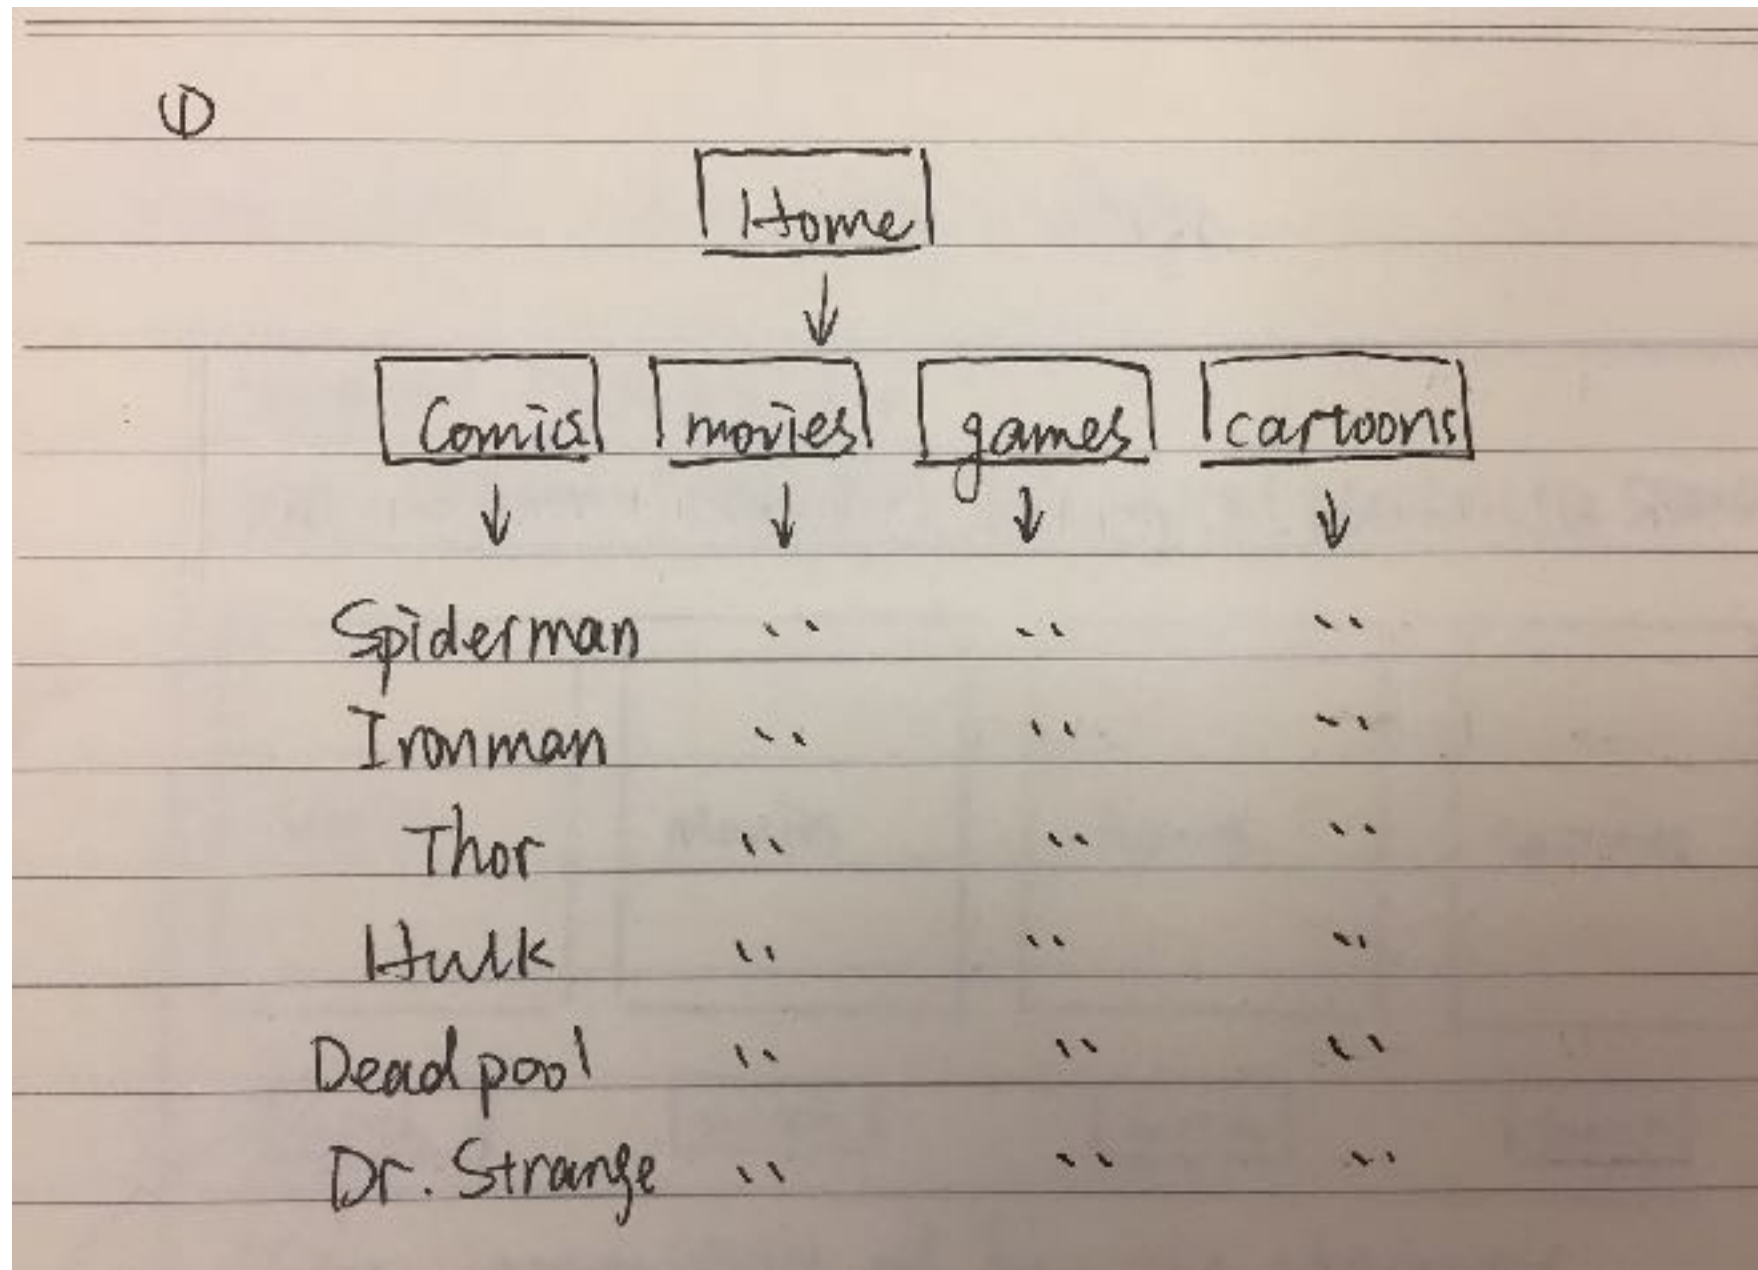 ①
Home
Comics movies games cartoons
Spiderman " " "
Ironman " " "
Thor " " "
Hulk " " "
Deadpool " " "
Dr. Strange " " "